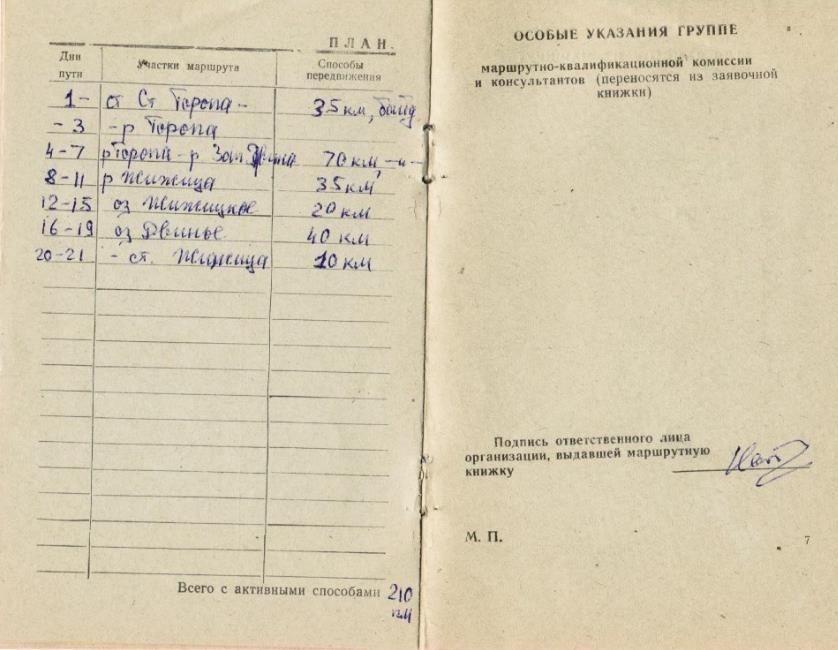 ПЛАН.
Дни пути Участки маршрута Способы передвижения
1- ст Ст Торопа- 35 км, байд
- 3 -р Торопа
4-7 р Торопа - р Зап Двина 70 км -и-
8-11 р Жижица 35 км
12-15 оз Жижицкое 20 км
16-19 оз Двинье 40 км
20-21 - ст. Жижица 10 км
Всего с активными способами 210 км
ОСОБЫЕ УКАЗАНИЯ ГРУППЕ
маршрутно-квалификационной комиссии
и консультантов (переносятся из заявочной
книжки)
Подпись ответственного лица
организации, выдавшей маршрутную
книжку
М. П.
7